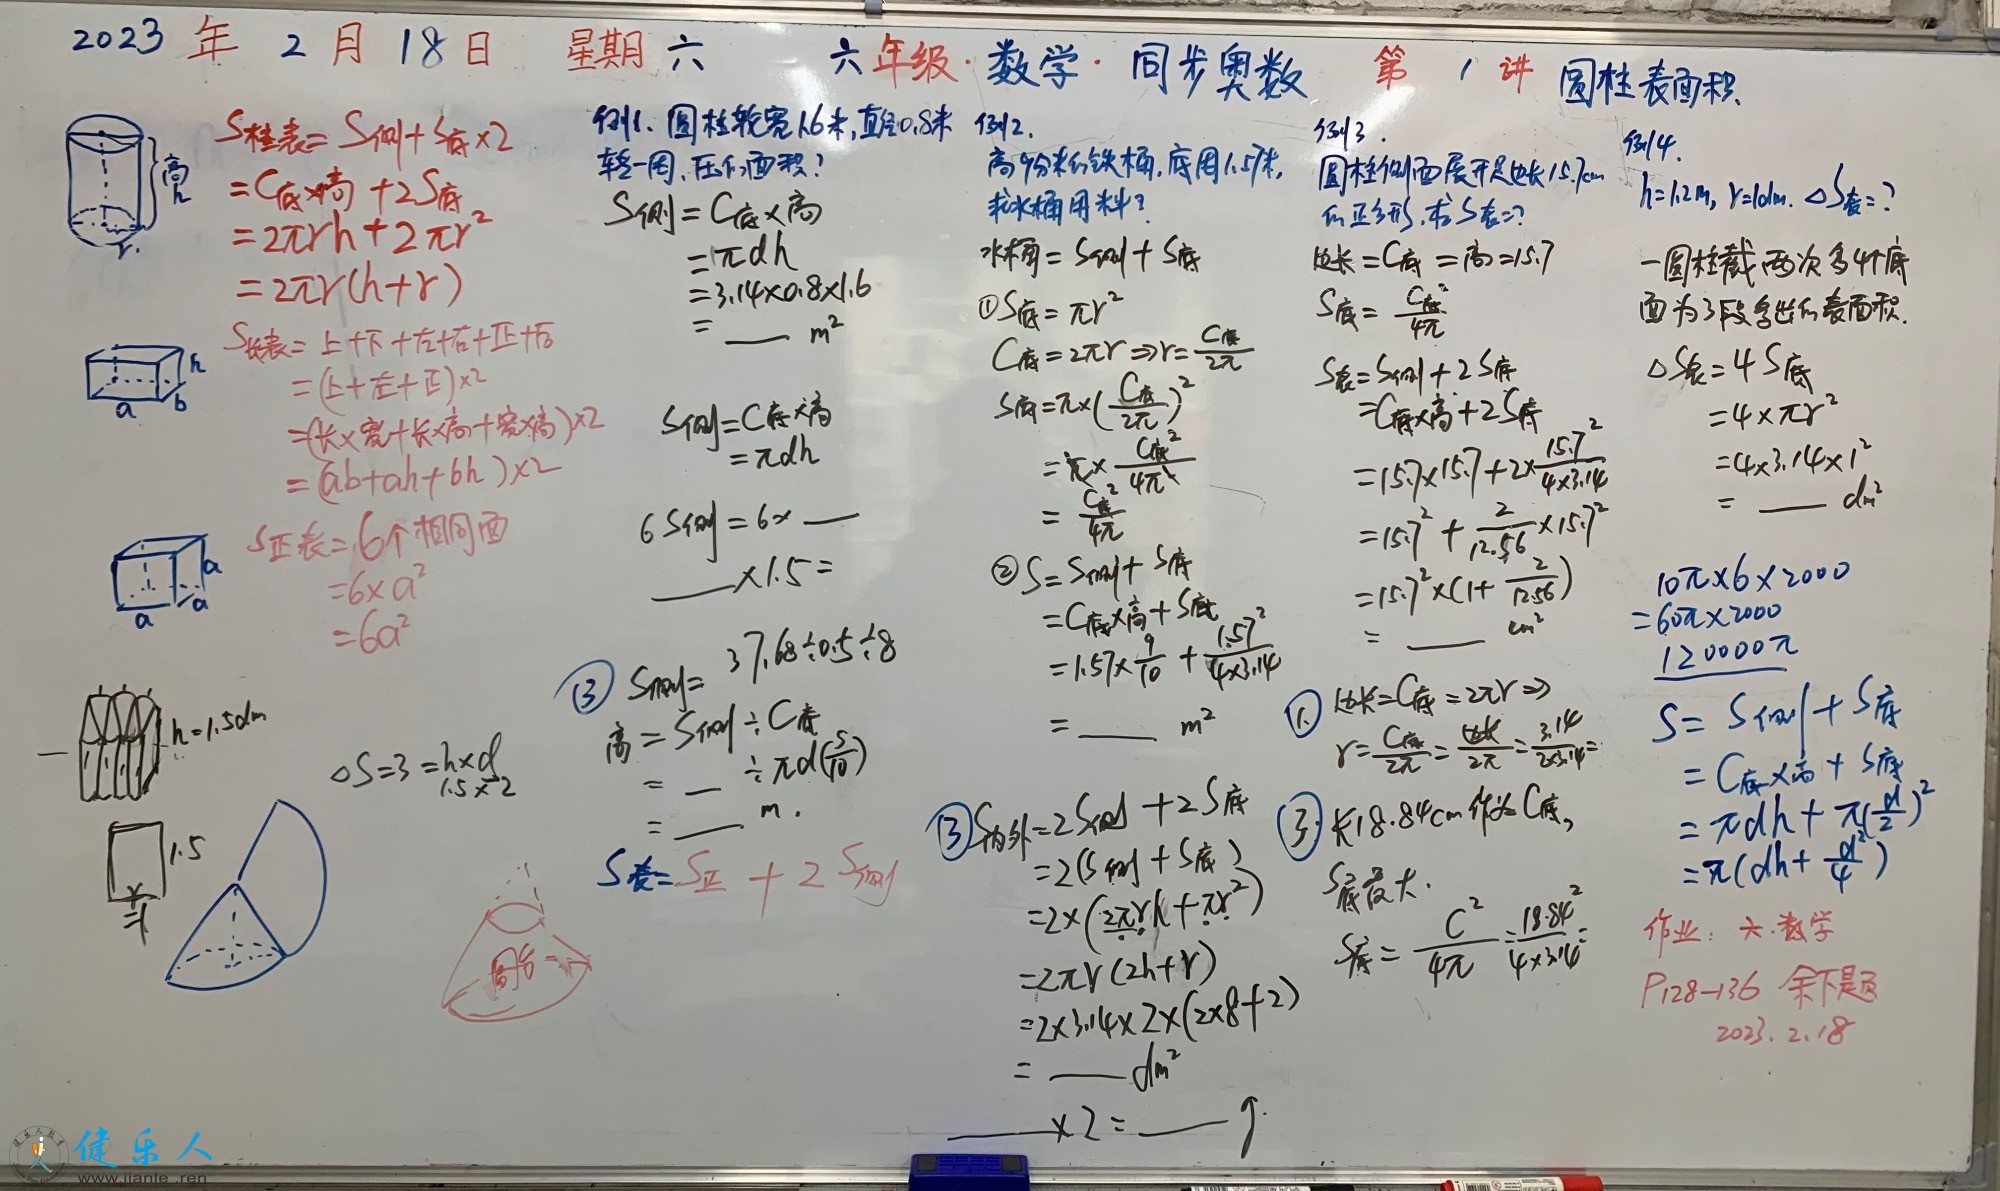 2023年2月18日 星期六 六年级·数学·同步奥数 第1讲 圆柱表面积
高
h
r
S柱表=S侧+S底×2
=C底×高+2S底
=2πrh+2πr²
=2πr(h+r)
h
a b
S长表=上+下+左+右+正+后
=(上+左+正)×2
=(长×宽+长×高+宽×高)×2
=(ab+ah+bh)×2
a
a
a
S正表=6个相同面
=6×a²
=6a²
h=1.5dm
△S=3=h×d
1.5×2
1.5
圆台
例1. 圆柱轮宽1.6米,直径0.8米
转一周,压的面积?
S侧=C底×高
=πdh
=3.14×0.8×1.6
=____m²
S侧=C底×高
=πdh
6S侧=6×__
____×1.5=
③ S侧=37.68÷0.5÷8
高=S侧÷C底
=__÷πd(5/10)
=____m.
S表=S正+2S侧
例2.
高9分米的铁桶,底周1.57米,
求水桶用料?
水桶=S侧+S底
①S底=πr²
C底=2πr⇒r=C底/2π
S底=π×(C底/2π)²
=π×C底²/4π²
=C底²/4π
②S=S侧+S底
=C底×高+S底
=1.57×9/10+1.57²/4×3.14
=____m²
③S内外=2S侧+2S底
=2(S侧+S底)
=2×(2πrh+πr²)
=2πr(2h+r)
=2×3.14×2×(2×8+2)
=____dm²
____×2=____g.
例3.
圆柱侧面展开是边长15.7cm
的正方形,求S表=?
边长=C底=高=15.7
S底=C底²/4π
S表=S侧+2S底
=C底×高+2S底
=15.7×15.7+2×15.7²/4×3.14
=15.7²+2/12.56×15.7²
=15.7²×(1+2/12.56)
=____cm²
①边长=C底=2πr⇒
r=C底/2π=边长/2π=3.14/2×3.14=
③. 长18.84cm作为C底,
S底最大.
S底=C²/4π=18.84²/4×3.14=
例4.
h=1.2m, r=1dm. △S表=?
一圆柱截两次多4个底
面为3段多出的表面积.
△S表=4S底
=4×πr²
=4×3.14×1²
=____dm²
10π×6×2000
=60π×2000
120000π
S=S侧+S底
=C底×高+S底
=πdh+π(d/2)²
=π(dh+d²/4)
作业: 六.数学
P128-136 余下题
2023.2.18
健乐人
www.jianle.ren